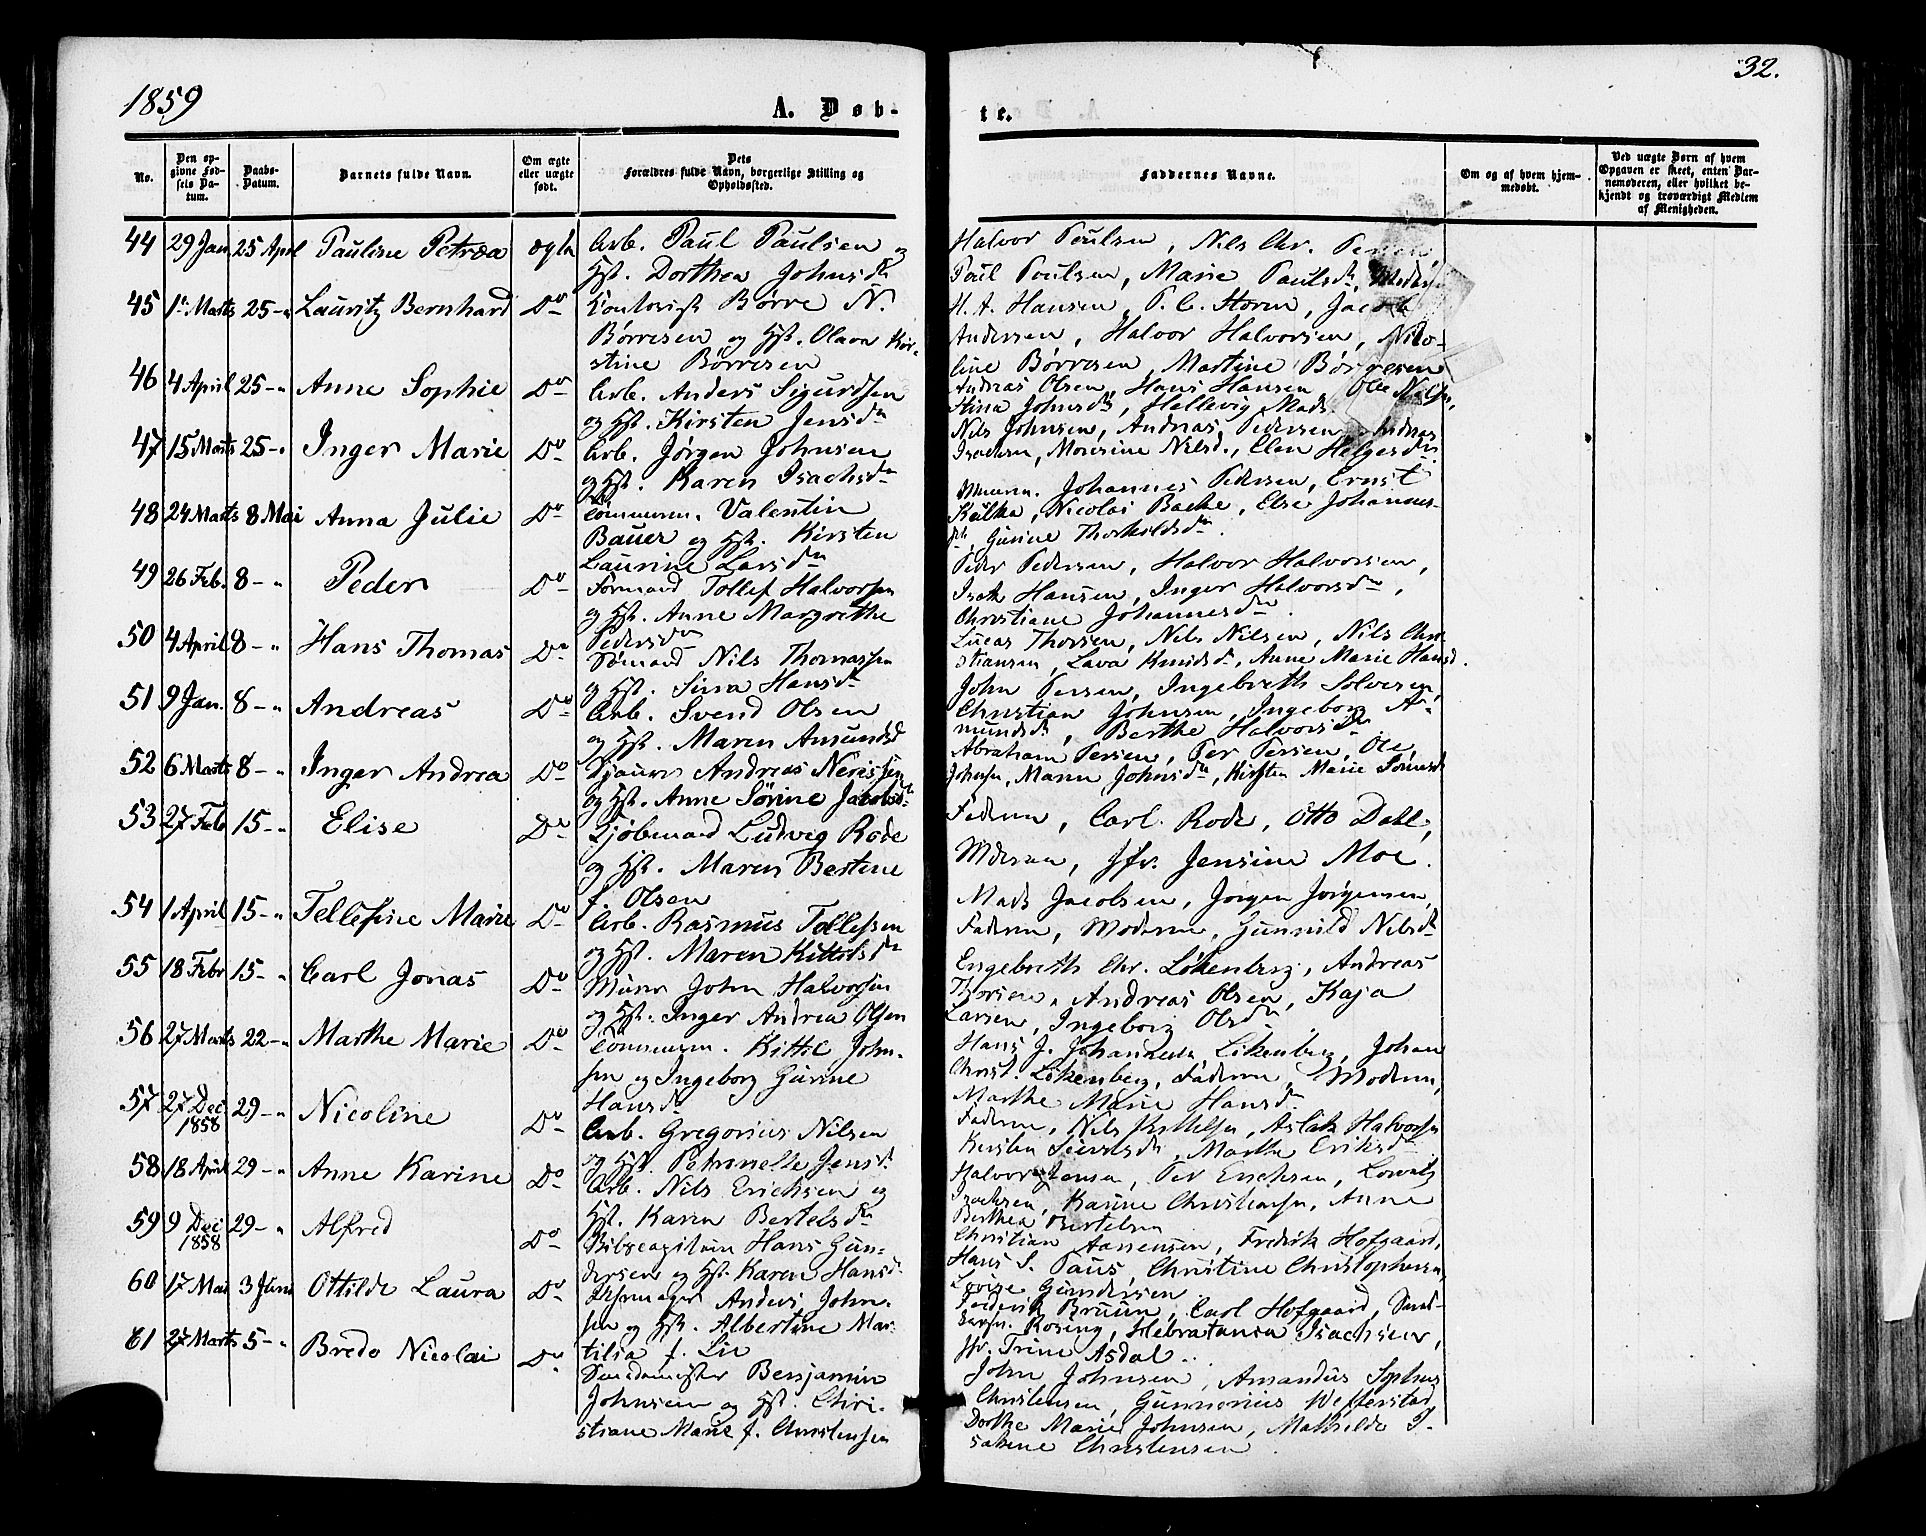 1859
A. Døb-
te.
32.
No.
Den op-
givne Fød-
sels Da-
tum.
Daabs-
Datum.
Barnets fulde Navn.
Om ægte
eller uægte
født.
Dets
Forældres fulde Navn, borgerlige Stilling og
Opholdssted.
Faddernes Navne.
Om og af hvem hjem-
medøbt.
Ved uægte Børn af hvem
Opgaven er skeet, enten Bar-
nemoderen, eller hvilket be-
kjendt og troværdigt Medlem
af Menigheden.
44 29 Jan. 25 April Pauline Petrea ægte Arb. Paul Paulsen og
Hst. Dorthea Johnsdn
Halvor Poulsen, Nils Chr.
Poul Poulsen, Marie Paulsdn,
45 1 Marts 25 - " Lauritz Bernhard Do Kontorist Børre N.
Børresen og Hst. Olava Kir-
stine Børresen
H. A. Hansen, P. C. Storm, Jacob
Andersen, Halvor Halvorsen, Niko-
line Børresen, Martine Børresen
46 4 April 25 - " Anne Sophie Do Arb. Anders Sigurdsen
og Hst. Kirsten Jensdn
Andreas Olsen, Hans Hansen Ole Nilsen,
Stina Johnsdn, Hellevig Mads
47 15 Marts 25 - " Inger Marie Do Arb. Jørgen Johnsen
og Hst. Karen Isachsdn
Nils Johnsen, Andreas Pedersen, Andreas
Isachsen, Mourine Nilsd., Elen Helgesdn
48 24 Marts 8 Mai Anna Julie Do Tømmerm. Valentin
Bauer og Hst. Kirsten
Laurine Larsdn
Johannes Pedersen, Ernst
Külka, Nicolai Backe, Else Johannes-
dn, Gunne Thorkildsdn.
49 26 Feb. 8 - " Peder Do Formand Tollef Halvorsen
og Hst. Anne Margrethe
Pedersdn
Peder Pedersen, Halvor Halvorsen,
Isak Hansen, Inger Halvorsdn,
Christiane Johannesdn
50 4 April 8 - " Hans Thomas Do Sømand Nils Thomassen
og Hst. Sina Hansdn
Lucas Thorsen, Nils Nilsen, Nils Chri-
stiansen, Lava Knudsdn, Anne Marie Hansd.
51 9 Jan. 8 - " Andreas Do Arb. Svend Olsen
og Hst. Maren Amundsd
John Persen, Ingebreth Solvesen,
Christian Johnsen, Ingeborg A-
mundsdn, Berthe Halvorsdn
52 6 Marts 8 - " Inger Andrea Do Andreas Nerissen
og Hst. Anne Sørine Jacobsd
Abraham Persen, Per Persen, Ole
Johnsen, Maren Johnsdn, Kirsten Marie
53 27 Feb 15 - " Elise Do Kjøbmand Ludvig Rode
og Hst. Maren Bertine
f. Olsen
Faderen, Carl Rode, Otto Dahl,
Moderen, Jfr. Jensine Moe.
54 1 April 15 - " Tellefine Marie Do Arb. Rasmus Tollefsen
og Hst. Maren Kittelsdn
Mads Jacobsen, Jørgen Jørgensen,
Faderen, Moderen, Gunnild Nilsdn
55 18 Febr 15 - " Carl Jonas Do Murer John Halvorsen
og Hst. Inger Andrea Olsen
Engebreth Chr. Løkenberg, Andreas
Thorsen, Andreas Olsen, Kaja
Larsen, Ingeborg Olsdn
56 27 Marts 22 - " Marthe Marie Do Tømmerm. Kittil John-
sen og Ingeborg Gurine
Hansdn
Hans J. Johannesen Likenberg, Johan
Christ. Likenberg, Faderen, Moderen,
Marthe Marie Hansdn
57 27 Dec 1858 29 - " Nicoline Do Arb. Gregorius Nilsen
og Hst. Petronelle Jensd.
Faderen, Nils Kittelsen, Aslak Halvorsen
Kirsten Sivertsdn, Marthe Eriksdn
58 18 April 29 - " Anne Karine Do Arb. Nils Erichsen og
Hst. Karen Bertelsdn
Halvor Jensen, Per Erichsen, Lovald
Isachsen, Karine Christensen, Anne
Berthea Bertelsen
59 9 Dec 1858 29 - " Alfred Do Hans Gun-
dersen og Hst. Karen Hansd.
Christian Aanensen, Fredrik Hofgaard,
Hans S. Paus Christine Christophersen,
Lovise Gundersen
60 17 Mai 3 Juni Ottilde Laura Do Anders John-
sen og Hst. Albertine Mar-
tilia f. Lie
Frederik Bruun, Carl Hofgaard,
Rosing, Isachsen,
Jfr. Trine Asdal.
61 27 Marts 5 - " Bredo Nicolai Do Smedemester Benjamin
Johnsen og Hst. Chri-
stiane Marie f. Christensen
John Johnsen, Amandus Sophus
Christensen, Gunnerius Wefferstad,
Dorthe Marie Johnsen, Mathilde I-
sakene Christensen.